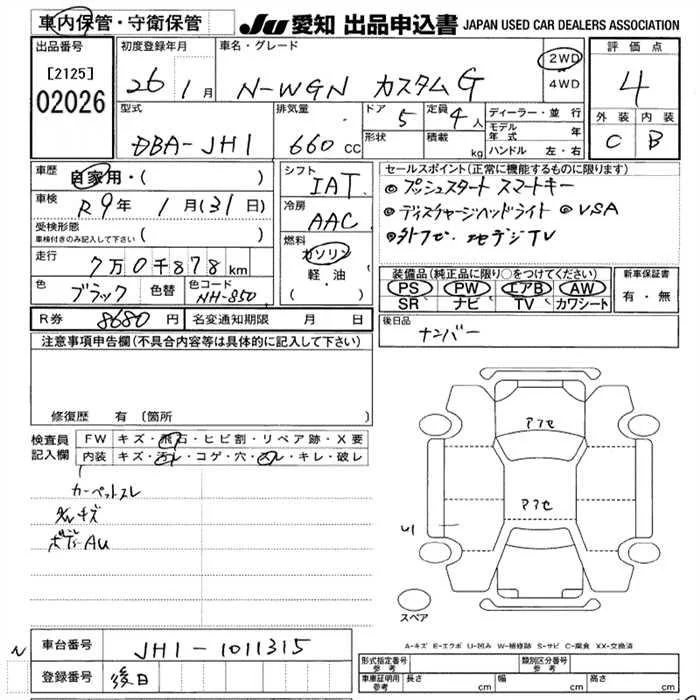 車内保管・守衛保管
JU 愛知 出品申込書 JAPAN USED CAR DEALERS ASSOCIATION
出品番号
[2125]
02026
初度登録年月
26 1月
車名・グレード
N-WGN カスタムG
2WD
4WD
評価点
4
外装 内装
C B
型式
DBA-JH1
排気量
660 CC
ドア 5
形状
定員 4人
積載 kg
ディーラー・並行
モデル年式 年
ハンドル 左・右
車歴 自家用・( )
車検 R9年 1月(31日)
受検形態
車検付きのみ記入して下さい ( )
走行 7万0千878km
色 ブラック 色替 色コード NH-850
シフト
IAT
冷房
AAC
燃料
ガソリン
軽・油
( )
セールスポイント(正常に機能するものに限ります)
◎プッシュスタート スマートキー
◎ディスチャージヘッドライト ◎VSA
◎外ナビ・地デジTV
装備品(純正品に限り○をつけてください)
PS PW エアB AW
SR ナビ TV カワシート
新車保証書
有・無
R券 8680円 名変通知期限 月 日
後日品
ナンバー
注意事項申告欄(不具合内容等は具体的に記入して下さい)
修復歴 有〔箇所 〕
検査員記入欄
FW キズ・飛石・ヒビ割・リペア跡・X要
内装 キズ・汚レ・コゲ・穴・スレ・キレ・破レ
カーペットスレ
キズ
ボディAU
アフセ
アフセ
U1
スペア
A-キズ E-エクボ U-凹み W-補修跡 S-サビ C-腐食 XX-交換済
車台番号 JH1-1011315
登録番号 後日
形式指定番号
参考
類別区分番号
参考
車庫証明用
参考
長さ cm 幅 cm 高さ cm